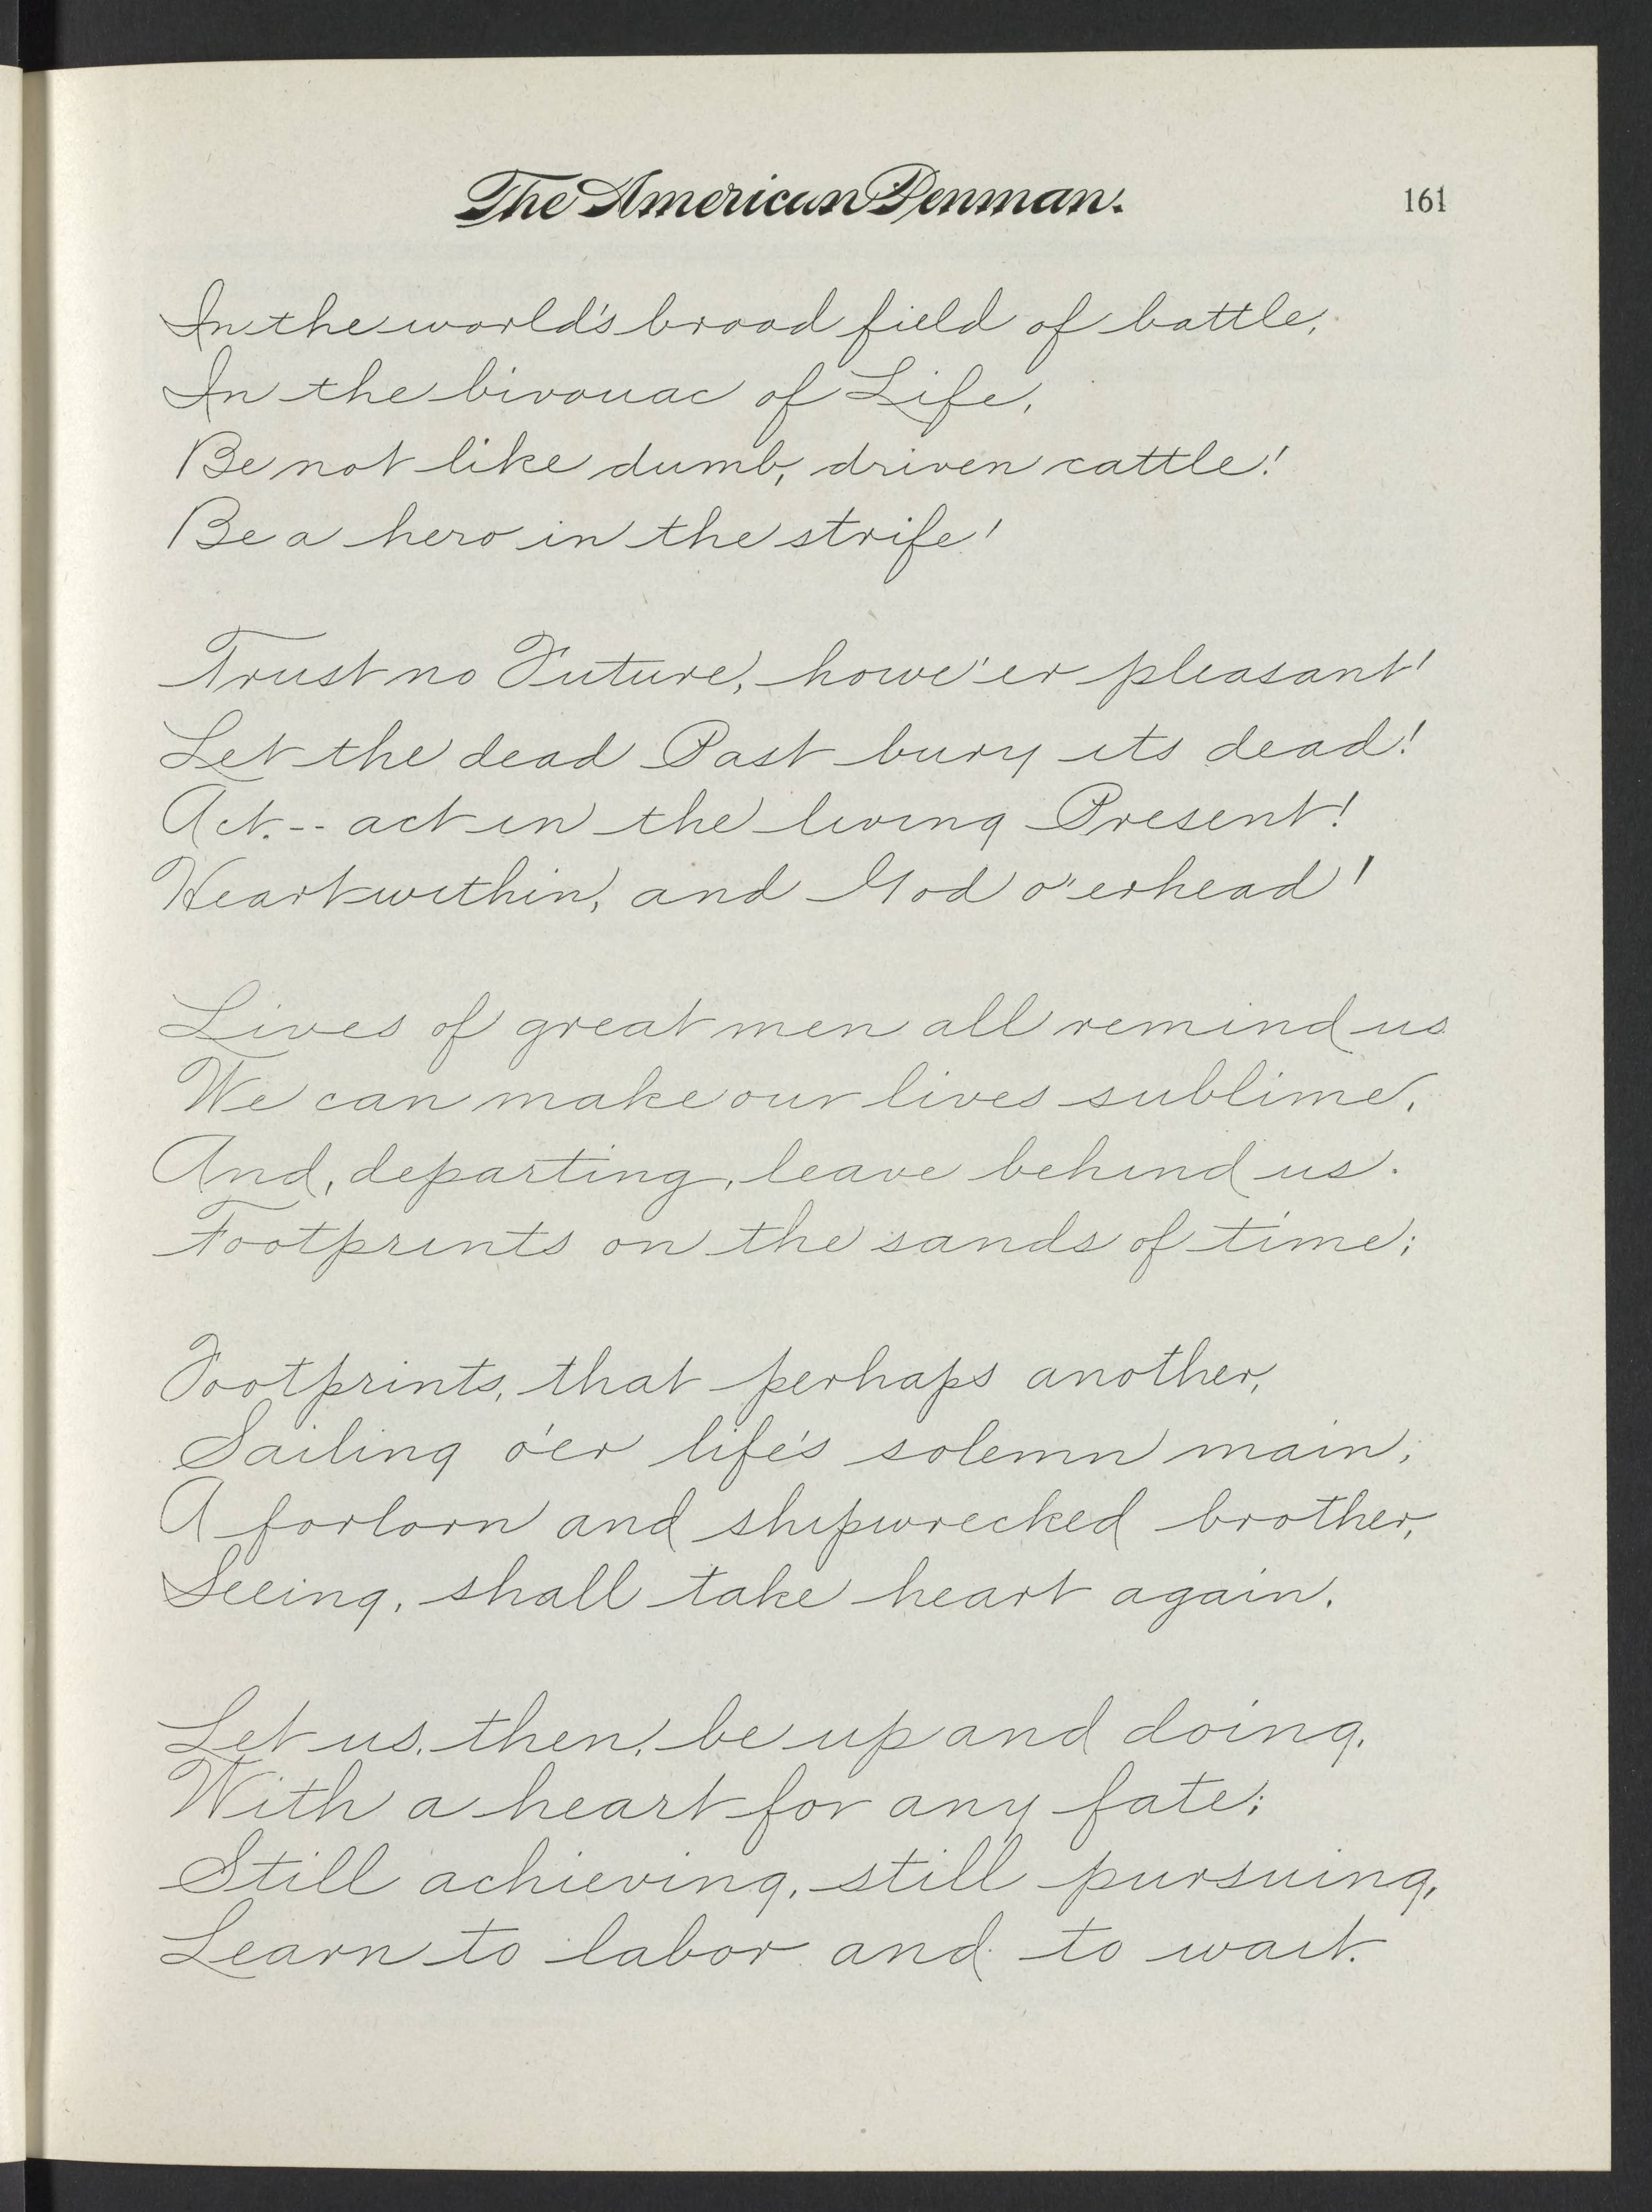 The American Penman.
161
In the world's broad field of battle,
In the bivouac of Life,
Be not like dumb, driven cattle!
Be a hero in the strife!
Trust no Future, howe'er pleasant!
Let the dead Past bury its dead!
Act.-- act in the living Present!
Heart within, and God o'erhead!
Lives of great men all remind us
We can make our lives sublime,
And, departing, leave behind us.
Footprints on the sands of time;
Footprints, that perhaps another,
Sailing o'er life's solemn main,
A forlorn and shipwrecked brother,
Seeing, shall take heart again.
Let us, then, be up and doing,
With a heart for any fate;
Still achieving, still pursuing,
Learn to labor and to wait.